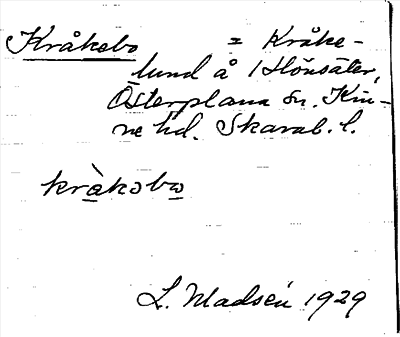 Kråkebo = Kråke-
lund å Hönsäter,
Österplana sn. Kin-
ne hd. Skarab. l.
kràkəbω
L. Madsén 1929